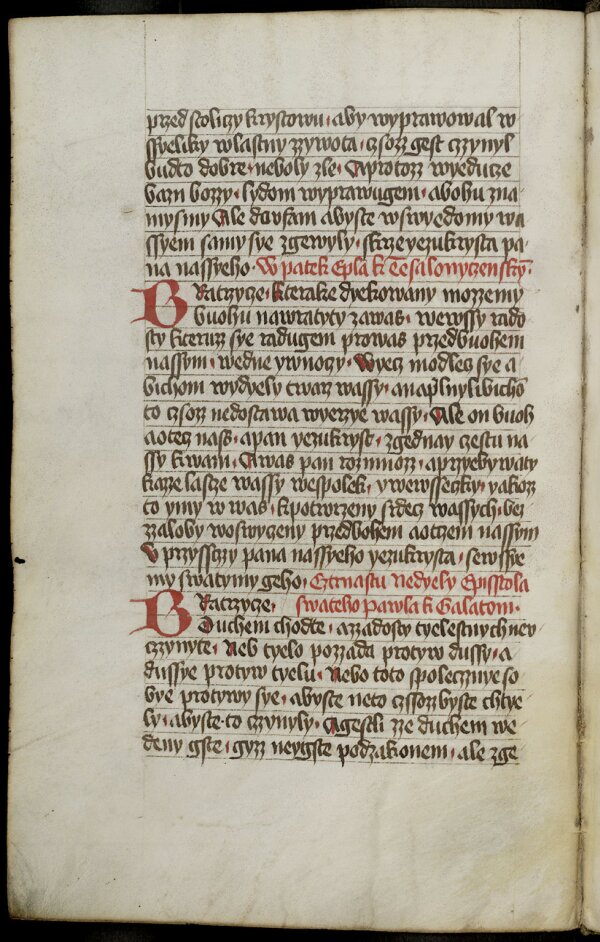 przed stoliczy krystowu · aby wyprawowal w
ssyeliky wlastny zzywota · czsozz gest czzynyl
budto dobre · neboly zle · Aprotozz wyeducze
bazn bozzy · lydom wyprawugem · abohu zna
mysmy Ale daufam abyste wswyedomy wa
ssyem samy sye zgewyly · skrze yezukrysta pa-
na nassyeho · W patek Epla k Tesalonyczenskym ·
Bratrzycze · kterake dyekowany mozzemy
buohu nawratyty zawas · wewssy rado
sty kteruz sye radugem prowas przedbuohem
nassym · wedne ywnoczy · Wyecz modlecz sye a
bichom wydyely twarz wassy · anaplnylibichō
to czsozz nedostawa wyerzye wassy · Ale on buoh
aotecz nass · apan yezukryst · zgednay czestu na
ssy kwam · Awas pan rozmnozz · aprzyebywaty
kazze lasze wassy wespolek · ywewsseczky · yakozz
to ymy w was · kpotwrzeny srdecz wassych · bez
zzaloby woswyczeny przedbohem aotczem nassym
v przyssczy pana nassyeho yezukrysta · sewssye
my swatymy geho · Cztrnastu nedyely Episstola
Bratrzycze · swateho pawla k Galatom ·
Duchem chodte · azzadosty tyelestnych nev
czzynyte · Neb tyelo pozzada protyw dussy · a
dussye protyw tyelu · Nebo toto spolecznye so
bye protywy sye · abyste neto czssozbyste chtye-
ly · abyste to czzynyly · Agestli zze duchem we
deny gste · gyzz neygste podzakonem · ale zge